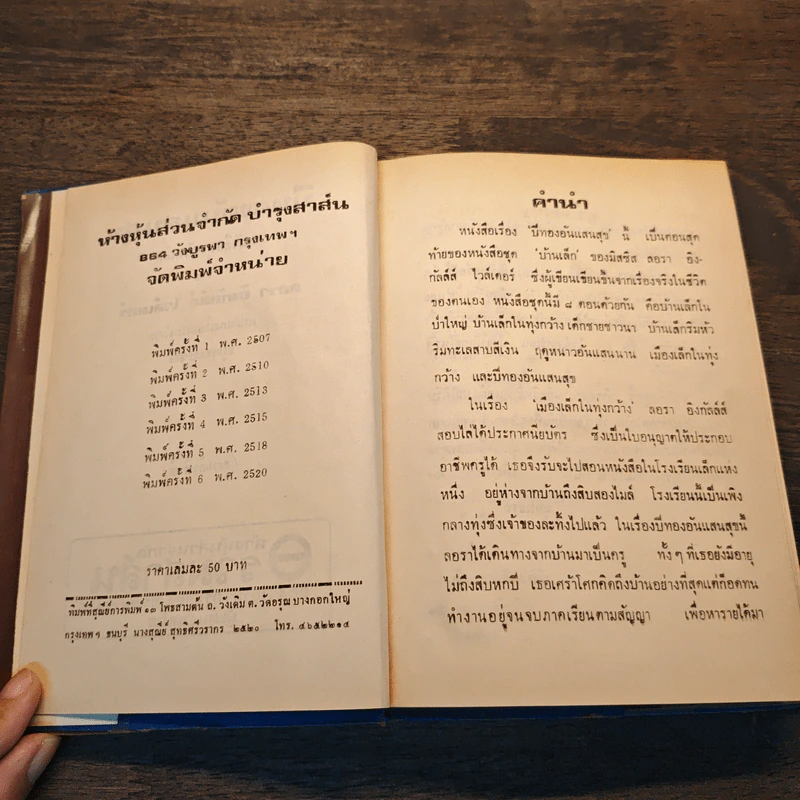 ห้างหุ้นส่วนจำกัด บำรุงสาส์น
864 วังบูรพา กรุงเทพฯ
จัดพิมพ์จำหน่าย
พิมพ์ครั้งที่ 1 พ.ศ. 2507
พิมพ์ครั้งที่ 2 พ.ศ. 2510
พิมพ์ครั้งที่ 3 พ.ศ. 2513
พิมพ์ครั้งที่ 4 พ.ศ. 2515
พิมพ์ครั้งที่ 5 พ.ศ. 2518
พิมพ์ครั้งที่ 6 พ.ศ. 2520
ราคาเล่มละ 50 บาท
พิมพ์ที่สุณีย์การพิมพ์ ๑๓ โพธสามต้น ถ. วังเดิม ต. วัดอรุณ บางกอกใหญ่
กรุงเทพฯ ธนบุรี นางสุณีย์ สุทธิศรีวรากร ๒๕๒๐ โทร. ๔๖๕๒๒๑๔
คำนำ
หนังสือเรื่อง 'ปีทองอันแสนสุข' นี้ เป็นตอนสุด
ท้ายของหนังสือชุด 'บ้านเล็ก' ของมิสซิส ลอรา อิง-
กัลล์ส์ ไวล์เดอร์ ซึ่งผู้เขียนเขียนขึ้นจากเรื่องจริงในชีวิต
ของตนเอง หนังสือชุดนี้มี ๘ ตอนด้วยกัน คือบ้านเล็กใน
ป่าใหญ่ บ้านเล็กในทุ่งกว้าง เด็กชายชาวนา บ้านเล็กริมห้ว
ริมทะเลสาบสีเงิน ฤดูหนาวอันแสนนาน เมืองเล็กในทุ่ง
กว้าง และปีทองอันแสนสุข
ในเรื่อง 'เมืองเล็กในทุ่งกว้าง' ลอรา อิงกัลล์ส์
สอบไล่ได้ประกาศนียบัตร ซึ่งเป็นใบอนุญาตให้ประกอบ
อาชีพครูได้ เธอจึงรับจะไปสอนหนังสือในโรงเรียนเล็กแห่ง
หนึ่ง อยู่ห่างจากบ้านถึงสิบสองไมล์ โรงเรียนนี้เป็นเพิง
กลางทุ่งซึ่งเจ้าของละทิ้งไปแล้ว ในเรื่องปีทองอันแสนสุขนี้
ลอราได้เดินทางจากบ้านมาเป็นครู ทั้ง ๆ ที่เธอยังมีอายุ
ไม่ถึงสิบหกปี เธอเศร้าโศกคิดถึงบ้านอย่างที่สุดแต่ก็อดทน
ทำงานอยู่จนจบภาคเรียนตามสัญญา เพื่อหารายได้มา